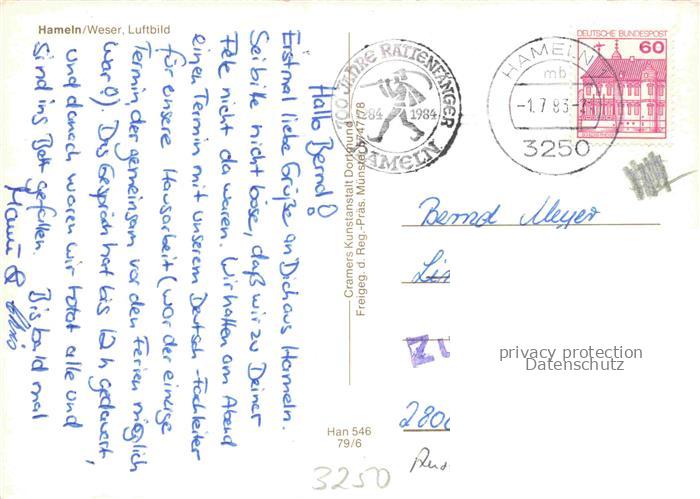 Hameln/Weser, Luftbild
Hallo Bernd!
Erstmal liebe Grüße an Dich aus Hameln.
Sei bitte nicht böse, daß wir zu Deiner
Fete nicht da waren. Wir hatten am Abend
einen Termin mit unserem Deutsch-Fachleiter
für unsere Hausarbeit (war der einzige
Termin der gemeinsam vor den Ferien möglich
war!). Das Gespräch hat bis 12 h gedauert,
und danach waren wir total alle und
sind ins Bett gefallen. Bis bald mal
Cramers Kunstanstalt Dortmund
Freigeg. d. Reg.-Präs. Münster 5747/78
Han 546
79/6
3250
700 JAHRE RATTENFÄNGER
1284 1984
HAMELN
HAMELN 1
mb
-1.7.83-
3250
DEUTSCHE BUNDESPOST
60
Bernd Meyer
Li
ZU
280
privacy protection
Datenschutz